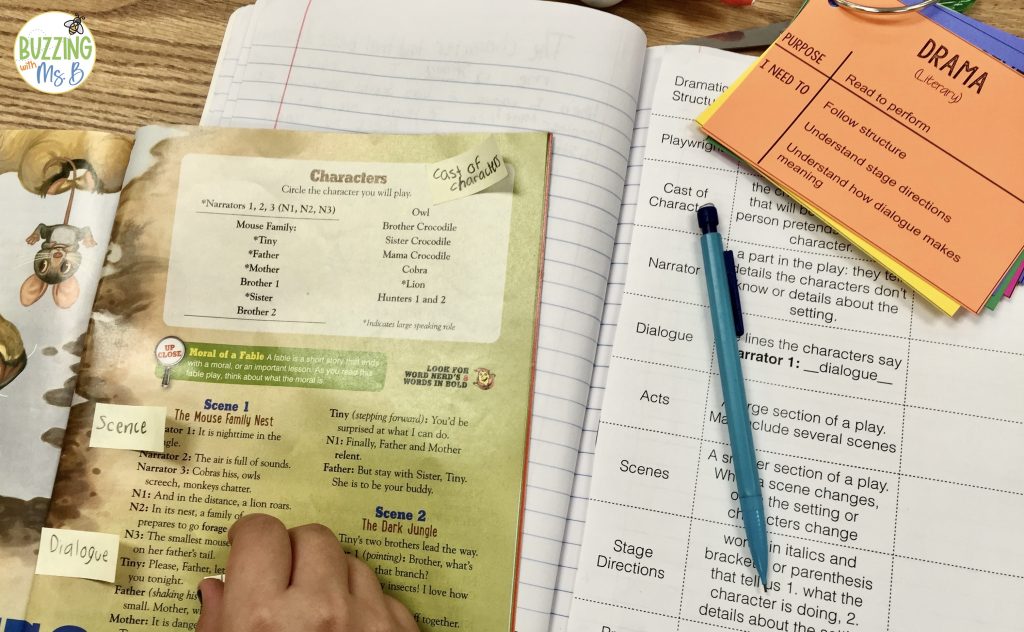 BUZZING
with
Ms. B
Characters
Circle the character you will play.
cast of
characters
*Narrators 1, 2, 3 (N1, N2, N3)
Mouse Family:
*Tiny
*Father
*Mother
Brother 1
*Sister
Brother 2
Owl
Brother Crocodile
Sister Crocodile
Mama Crocodile
Cobra
*Lion
Hunters 1 and 2
*Indicates large speaking role
UP
CLOSE
Moral of a Fable A fable is a short story that ends
with a moral, or an important lesson. As you read this
fable play, think about what the moral is.
LOOK FOR
WORD NERD'S 8
WORDS IN BOLD
Scence
Scene 1
The Mouse Family Nest
1: It is nighttime in the
Narrator 2: The air is full of sounds.
Narrator 3: Cobras hiss, owls
screech, monkeys chatter.
N1: And in the distance, a lion roars.
N2: In its nest, a family of
prepares to go forage
N3: The smallest mouse
on her father's tail.
Dialogue
Tiny: Please, Father, let
you tonight.
Father (shaking his
small. Mother,
Mother: It is
Tiny (stepping forward): You'd be
surprised at what I can do.
N1: Finally, Father and Mother
relent.
Father: But stay with Sister, Tiny.
She is to be your buddy.
Scene 2
The Dark Jungle
Tiny's two brothers lead the way.
1 (pointing): Brother, what's
that branch?
insects! I love how
together.
Dramatic
Playwright
Cast of
the
that will
person
character.
Narrator
a part in the play: they
details the characters don't
know or details about the
setting.
Dialogue
lines the characters say
1: __dialogue__
Acts
section of a play.
include several scenes
Scenes
A section of a play.
a scene changes,
the setting or
change
Stage
Directions
in italics and
or parenthesis
that 1. what the
character is doing, 2.
details about the
DRAMA
(Literary)
PURPOSE
Read to perform
I NEED TO
Follow structure
Understand stage directions
Understand how dialogue makes
meaning